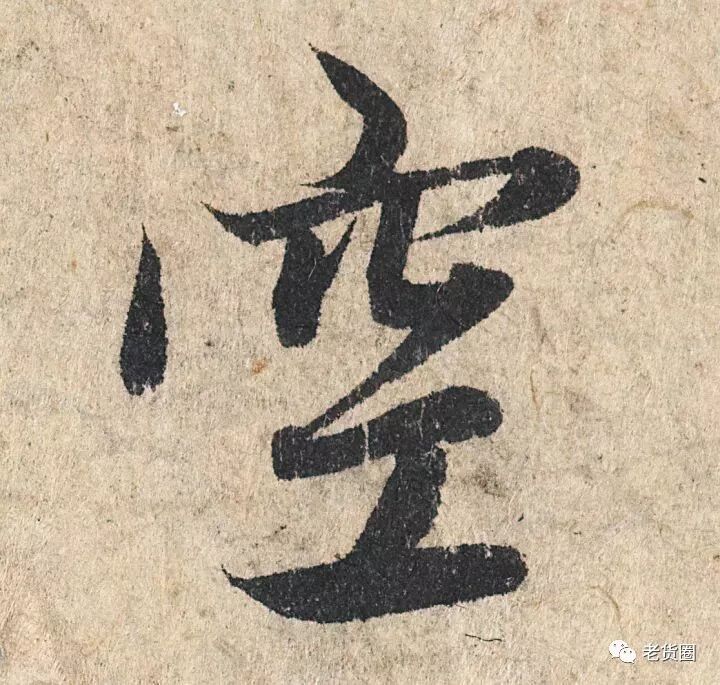 空
老货圈